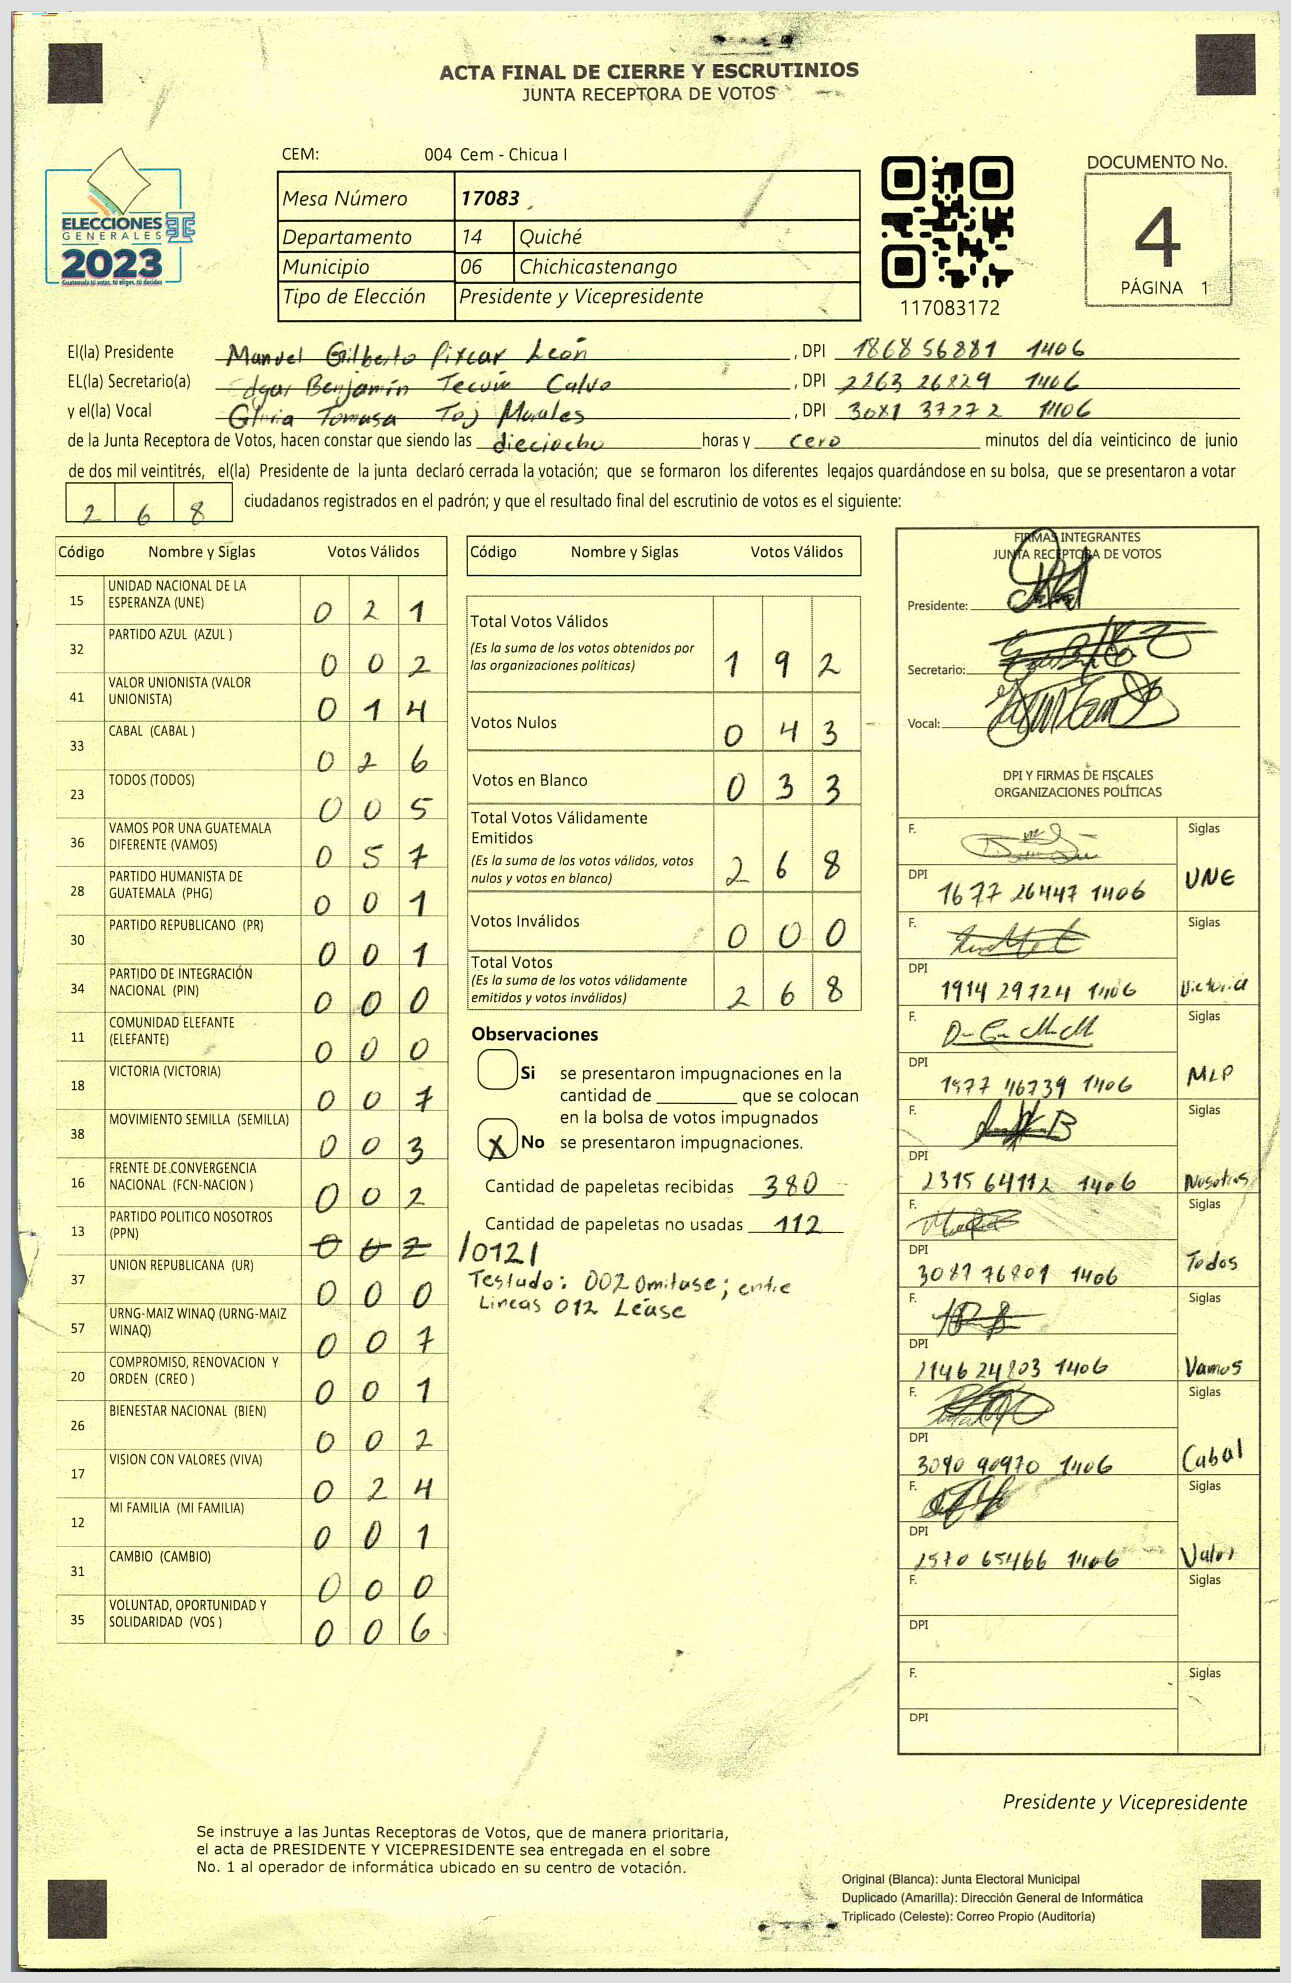 ACTA FINAL DE CIERRE Y ESCRUTINIOS
JUNTA RECEPTORA DE VOTOS
CEM: 004 Cem - Chicua I
ELECCIONES
GENERALES
2023
Guatemala tú votas, tú eliges, tú decides
Mesa Número 17083
Departamento 14 Quiché
Municipio 06 Chichicastenango
Tipo de Elección Presidente y Vicepresidente
117083172
DOCUMENTO No.
4
PÁGINA 1
El(la) Presidente Manuel Gilberto Pixcar León , DPI 1868 56881 1406
EL(la) Secretario(a) Edgar Benjamín Tecum Calvo , DPI 2263 26829 1406
y el(la) Vocal Gloria Tomasa Toj Morales , DPI 3081 37272 1406
de la Junta Receptora de Votos, hacen constar que siendo las dieciocho horas y cero minutos del día veinticinco de junio
de dos mil veintitrés, el(la) Presidente de la junta declaró cerrada la votación; que se formaron los diferentes legajos guardándose en su bolsa, que se presentaron a votar
2 6 8 ciudadanos registrados en el padrón; y que el resultado final del escrutinio de votos es el siguiente:
Código Nombre y Siglas Votos Válidos
15 UNIDAD NACIONAL DE LA ESPERANZA (UNE) 0 2 1
32 PARTIDO AZUL (AZUL ) 0 0 2
41 VALOR UNIONISTA (VALOR UNIONISTA) 0 1 4
33 CABAL (CABAL ) 0 2 6
23 TODOS (TODOS) 0 0 5
36 VAMOS POR UNA GUATEMALA DIFERENTE (VAMOS) 0 5 7
28 PARTIDO HUMANISTA DE GUATEMALA (PHG) 0 0 1
30 PARTIDO REPUBLICANO (PR) 0 0 1
34 PARTIDO DE INTEGRACIÓN NACIONAL (PIN) 0 0 0
11 COMUNIDAD ELEFANTE (ELEFANTE) 0 0 0
18 VICTORIA (VICTORIA) 0 0 7
38 MOVIMIENTO SEMILLA (SEMILLA) 0 0 3
16 FRENTE DE CONVERGENCIA NACIONAL (FCN-NACION ) 0 0 2
13 PARTIDO POLITICO NOSOTROS (PPN) 0 0 2 /012/
37 UNION REPUBLICANA (UR) 0 0 0
57 URNG-MAIZ WINAQ (URNG-MAIZ WINAQ) 0 0 7
20 COMPROMISO, RENOVACION Y ORDEN (CREO ) 0 0 1
26 BIENESTAR NACIONAL (BIEN) 0 0 2
17 VISION CON VALORES (VIVA) 0 2 4
12 MI FAMILIA (MI FAMILIA) 0 0 1
31 CAMBIO (CAMBIO) 0 0 0
35 VOLUNTAD, OPORTUNIDAD Y SOLIDARIDAD (VOS ) 0 0 6
Código Nombre y Siglas Votos Válidos
Total Votos Válidos
(Es la suma de los votos obtenidos por las organizaciones políticas) 1 9 2
Votos Nulos 0 4 3
Votos en Blanco 0 3 3
Total Votos Válidamente Emitidos
(Es la suma de los votos válidos, votos nulos y votos en blanco) 2 6 8
Votos Inválidos 0 0 0
Total Votos
(Es la suma de los votos válidamente emitidos y votos inválidos) 2 6 8
Observaciones
Si se presentaron impugnaciones en la
cantidad de ________ que se colocan
en la bolsa de votos impugnados
X No se presentaron impugnaciones.
Cantidad de papeletas recibidas 380
Cantidad de papeletas no usadas 112
Testado: 002 Omitase; entre
Lineas 012 Léase
FIRMAS INTEGRANTES
JUNTA RECEPTORA DE VOTOS
Presidente:
Secretario:
Vocal:
DPI Y FIRMAS DE FISCALES
ORGANIZACIONES POLÍTICAS
F. Siglas
DPI 1677 26447 1406 UNE
F. Siglas
DPI 1914 29724 1406 Victoria
F. Siglas
DPI 1977 46739 1406 MLP
F. Siglas
DPI 2315 64112 1406 Nosotros
F. Siglas
DPI 3087 76801 1406 Todos
F. Siglas
DPI 2146 24803 1406 Vamos
F. Siglas
DPI 3090 90970 1406 Cabal
F. Siglas
DPI 2570 65466 1406 Valor
F. Siglas
DPI
F. Siglas
DPI
Presidente y Vicepresidente
Se instruye a las Juntas Receptoras de Votos, que de manera prioritaria,
el acta de PRESIDENTE Y VICEPRESIDENTE sea entregada en el sobre
No. 1 al operador de informática ubicado en su centro de votación.
Original (Blanca): Junta Electoral Municipal
Duplicado (Amarilla): Dirección General de Informática
Triplicado (Celeste): Correo Propio (Auditoría)